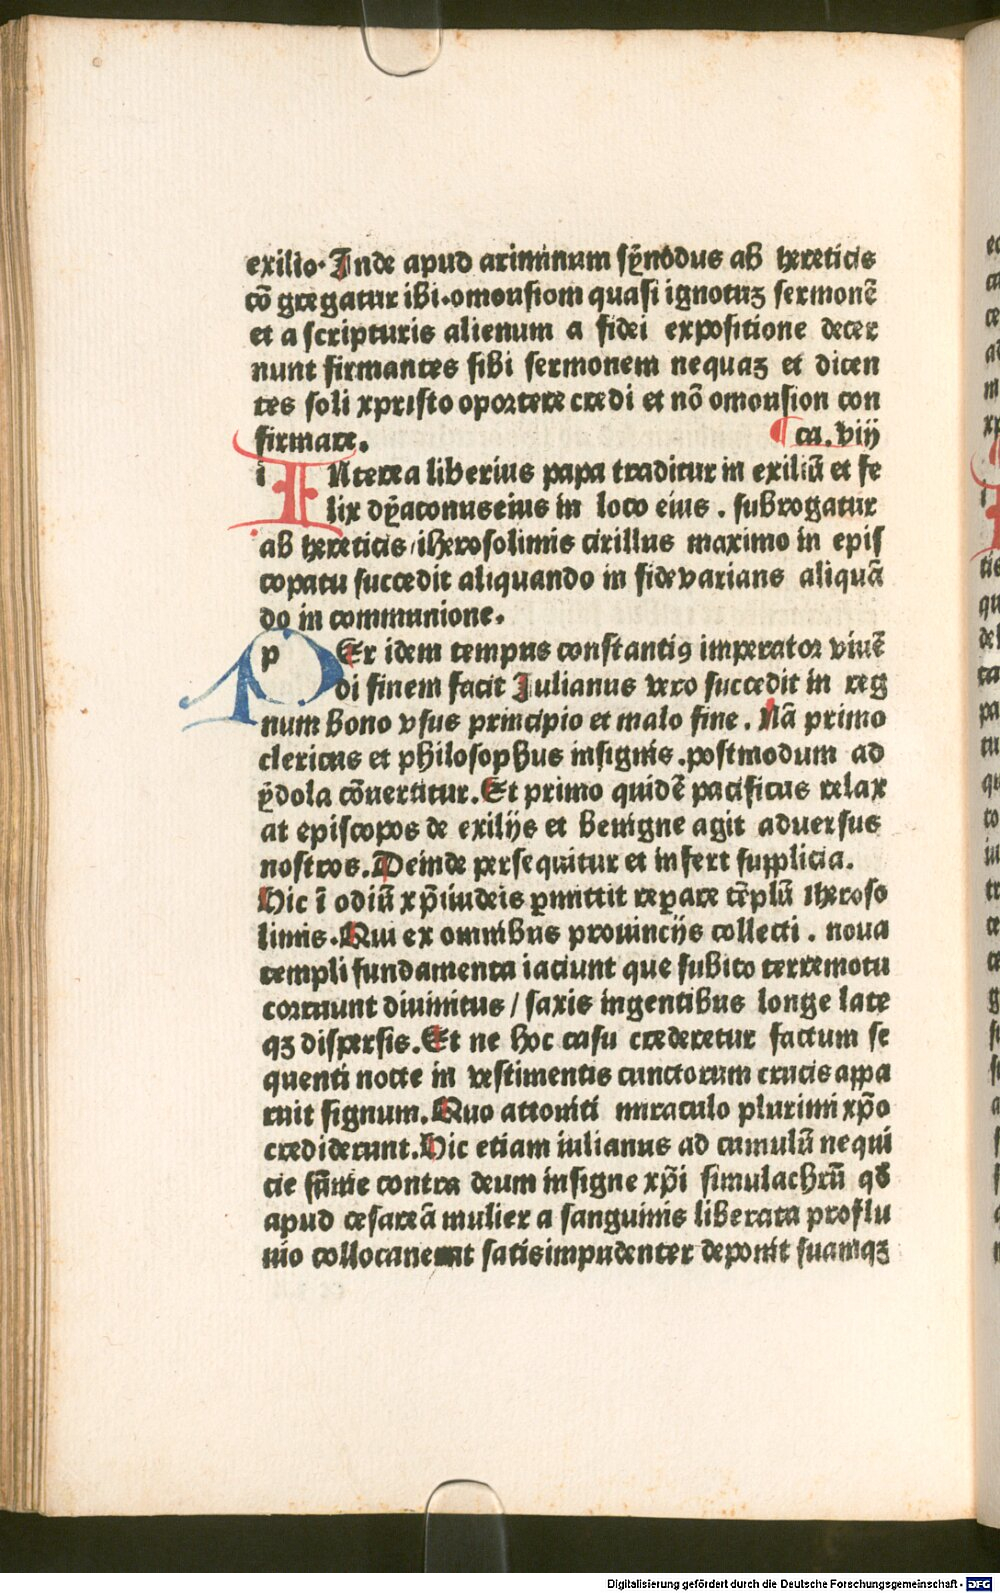 exilio. Inde apud ariminum sẏnodus ab hereticis
cō gregatur ibi.omousiom quasi ignotuꝫ sermonē
et a scripturis alienum a fidei expositione decer
nunt firmantes sibi sermonem nequaꝫ et dicen
tes soli xpristo oportere credi et nō omousion con
firmare. ¶ ca. viij
i Nterea liberius papa traditur in exiliū et fe
lix dẏaconus eius in loco eius . subrogatur
ab hereticis / iherosolimis cirillus maximo in epis
copatu succedit aliquando in fide varians aliquā
do in communione.
p Er idem tempus constantiꝯ imperator viuē
di finem facit Julianus vero succedit in reg
num bono vsus principio et malo fine . Nā primo
clericus et philosophus insignis .postmodum ad
ẏdola cōuertitur. Et primo quidē pacificus relax
at episcopos de exilijs et benigne agit aduersus
nostros. Deinde persequitur et infert supplicia.
Hic ī odiū xp̄i iudeis ꝑmittit reꝑare tēplū iheroso
limis. Qui ex omnibus prouincijs collecti . noua
templi fundamenta iaciunt que subito terremotu
corruunt diuinitus / saxis ingentibus longe late
qꝫ dispersis. Et ne hoc casu crederetur factum se
quenti nocte in vestimentis cunctorum crucis appa
ruit signum. Quo attoniti miraculo plurimi xp̄o
crediderunt. Hic etiam iulianus ad cumulū nequi
cie sūme contra deum insigne xp̄i simulachrū qđ
apud cesareā mulier a sanguinis liberata proflu
uio collocauerat satis impudenter deponit suamqꝫ
Digitalisierung gefördert durch die Deutsche Forschungsgemeinschaft - DFG